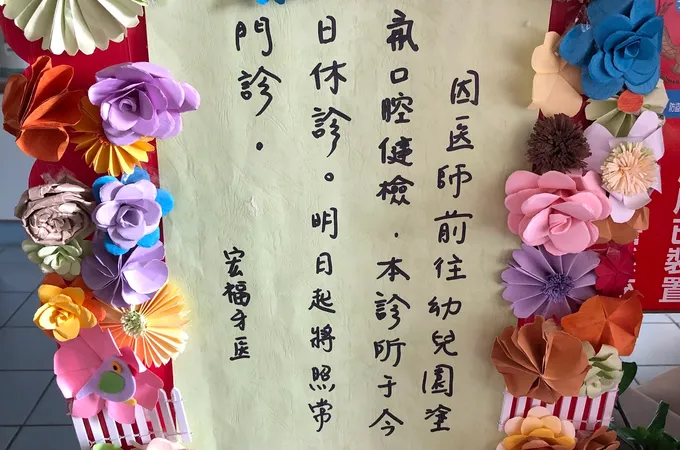 因医師前往幼兒園塗
氟口腔健檢．本診所于今
日休診。明日起將照常
門診．
宏福牙医
已裝置